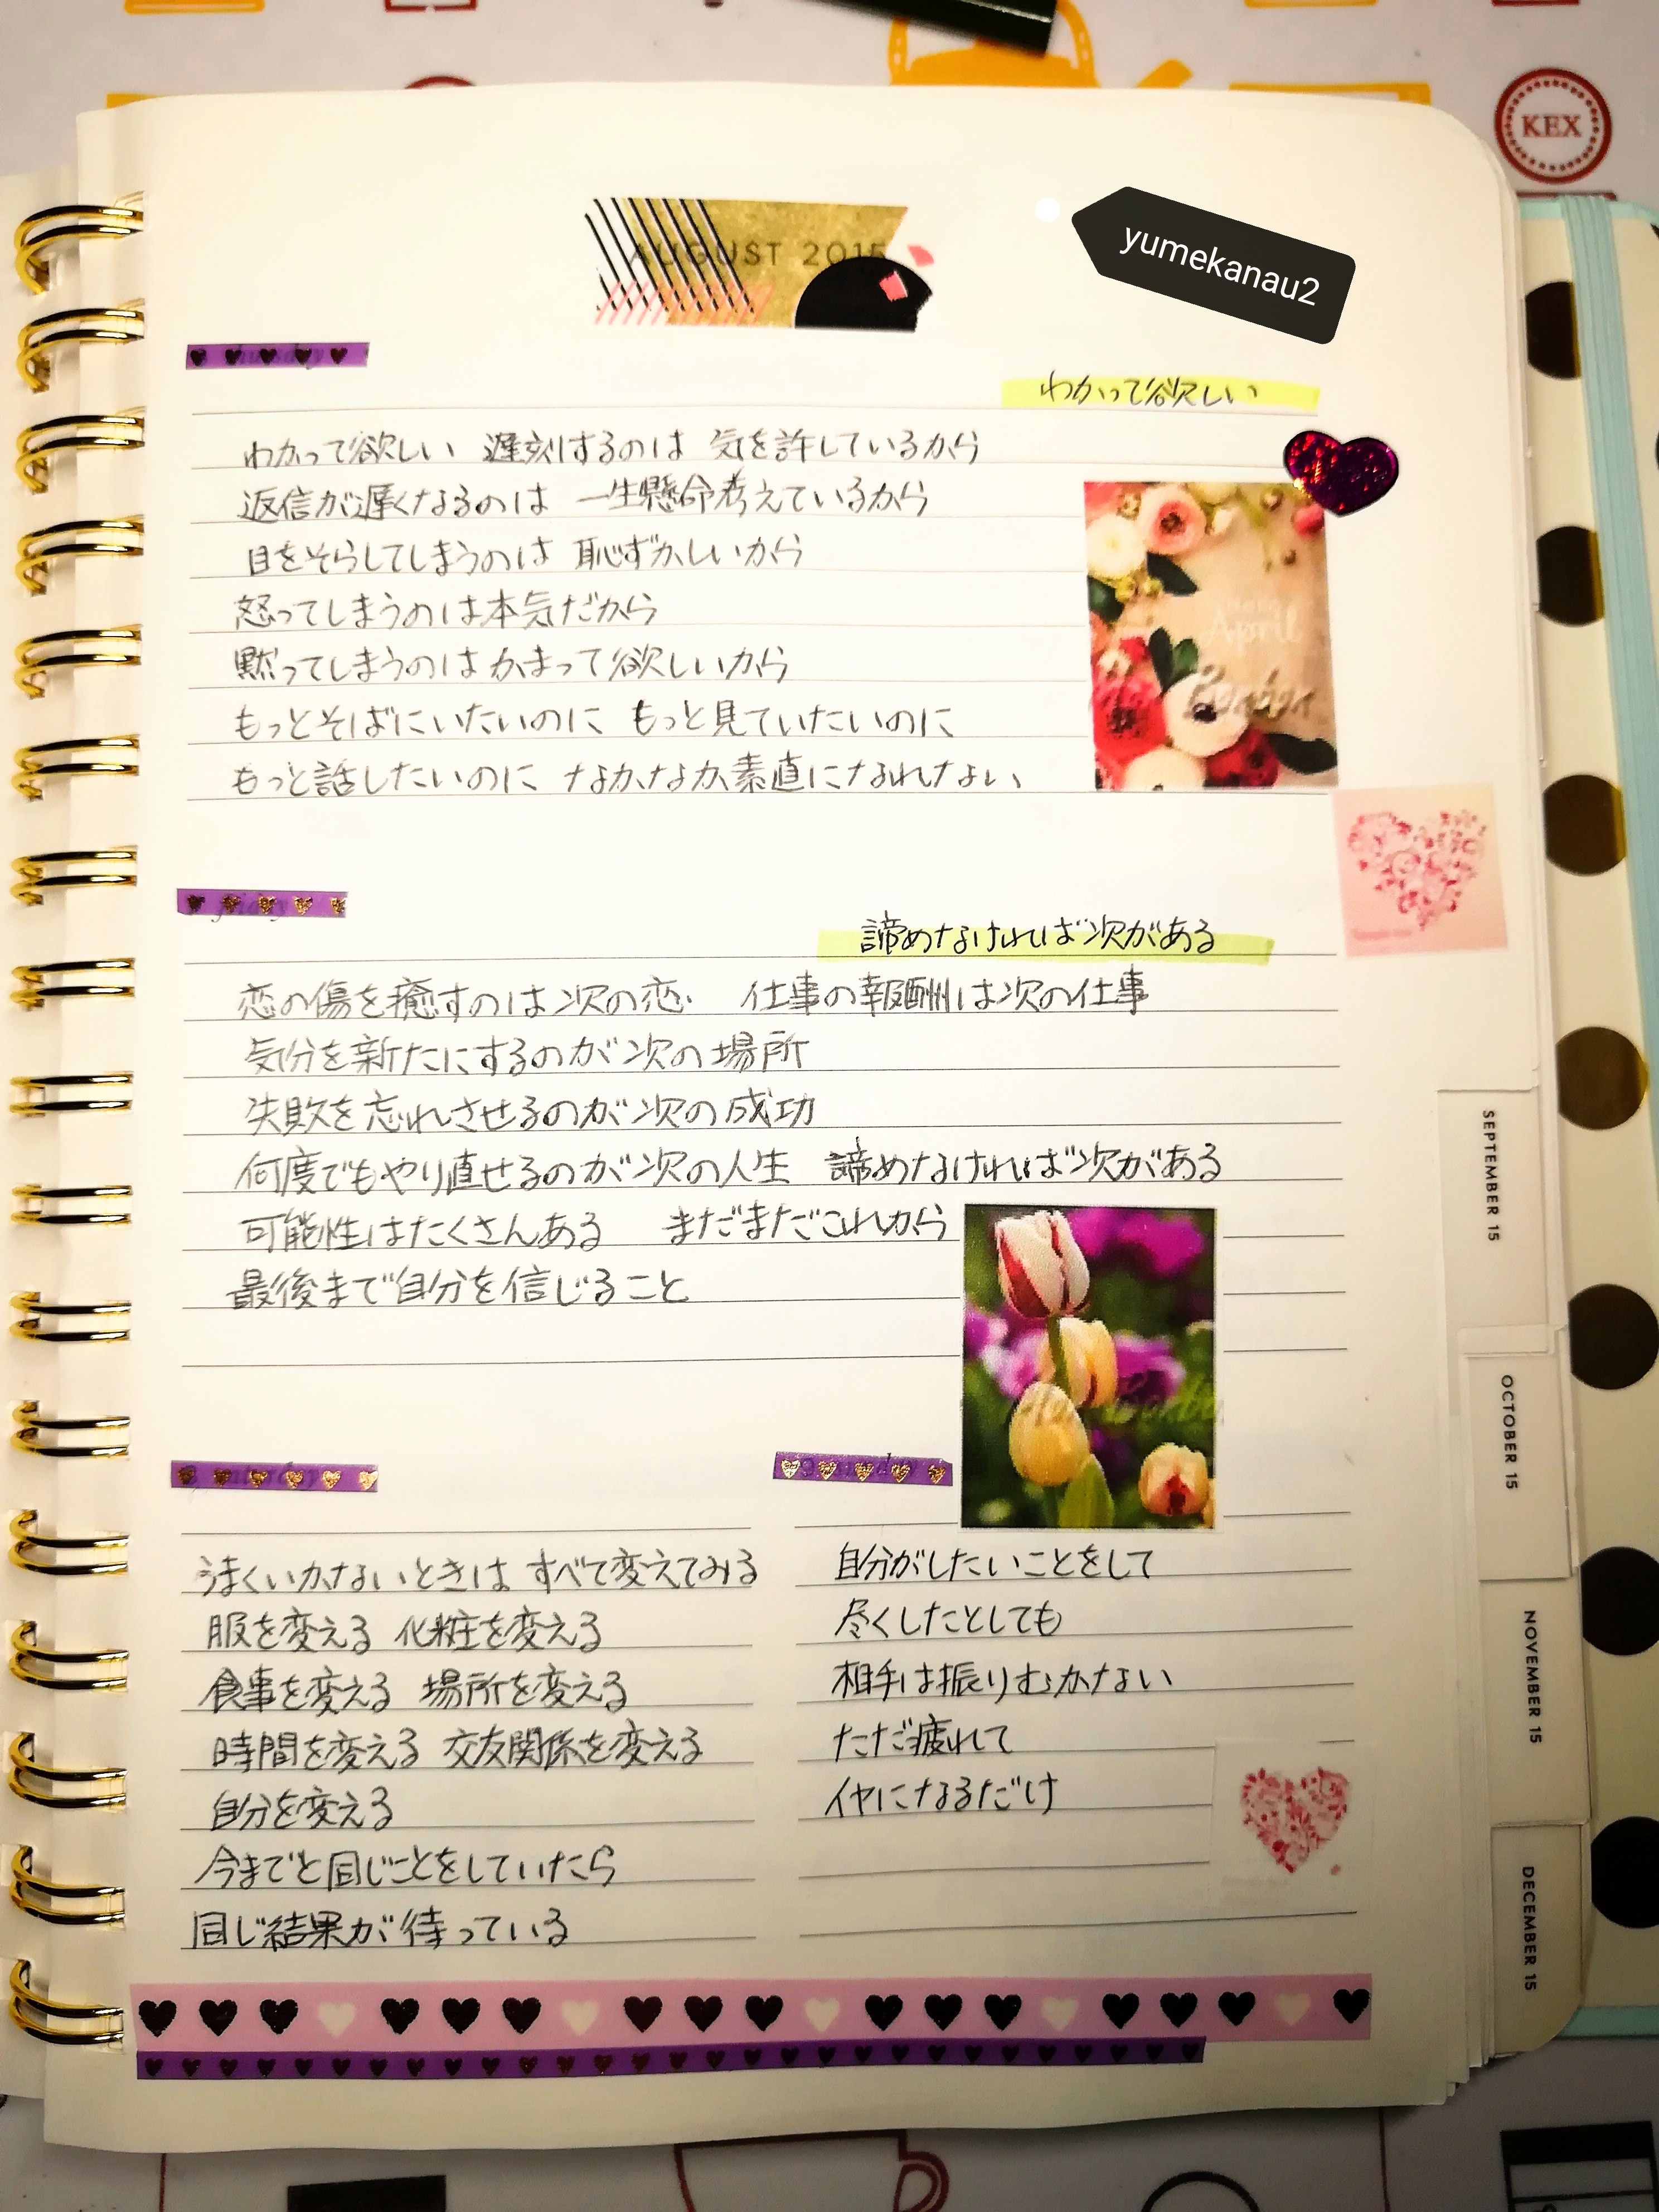 KEX
AUGUST 2015
yumekanau2
わかって欲しい
わかって欲しい 遅刻するのは 気を許しているから
返信が遅くなるのは 一生懸命考えているから
目をそらしてしまうのは 恥ずかしいから
怒ってしまうのは本気だから
黙ってしまうのはかまって欲しいから
もっとそばにいたいのに もっと見ていたいのに
もっと話したいのに なかなか素直になれない
April
諦めなければ次がある
恋の傷を癒すのは次の恋 仕事の報酬は次の仕事
気分を新たにするのが次の場所
失敗を忘れさせるのが次の成功
何度でもやり直せるのが次の人生 諦めなければ次がある
可能性はたくさんある まだまだこれから
最後まで自分を信じること
うまくいかないときは すべて変えてみる
服を変える 化粧を変える
食事を変える 場所を変える
時間を変える 交友関係を変える
自分を変える
今までと同じことをしていたら
同じ結果が待っている
自分がしたいことをして
尽くしたとしても
相手は振りむかない
ただ疲れて
イヤになるだけ
SEPTEMBER 15
OCTOBER 15
NOVEMBER 15
DECEMBER 15